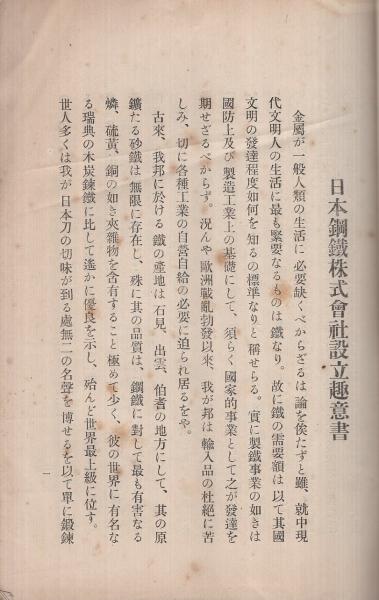 日本鋼鐵株式會社設立趣意書
金屬が一般人類の生活に必要缺くべからざるは論を俟たずと雖、就中現
代文明人の生活に最も緊要なるものは鐵なり。故に鐵の需要額は以て其國
文明の發達程度如何を知るの標準なりと稱せらる。實に製鐵事業の如きは
國防上及び製造工業上の基礎にして、須らく國家的事業として之が發達を
期せざるべからず。況んや歐洲戰亂勃發以來、我が邦は輸入品の杜絕に苦
しみ、切に各種工業の自營自給の必要に迫られ居るをや。
古來、我邦に於ける鐵の產地は石見、出雲、伯耆の地方にして、其の原
鑛たる砂鐵は無限に存在し、殊に其の品質は、鋼鐵に對して最も有害なる
燐、硫黃、銅の如き夾雜物を含有すること極めて少く、彼の世界に有名な
る瑞典の木炭鍊鐵に比して遙かに優良を示し、殆んど世界最上級に位す。
世人多くは我が日本刀の切味が到る處無二の名聲を博せるを以て單に鍛鍊
一